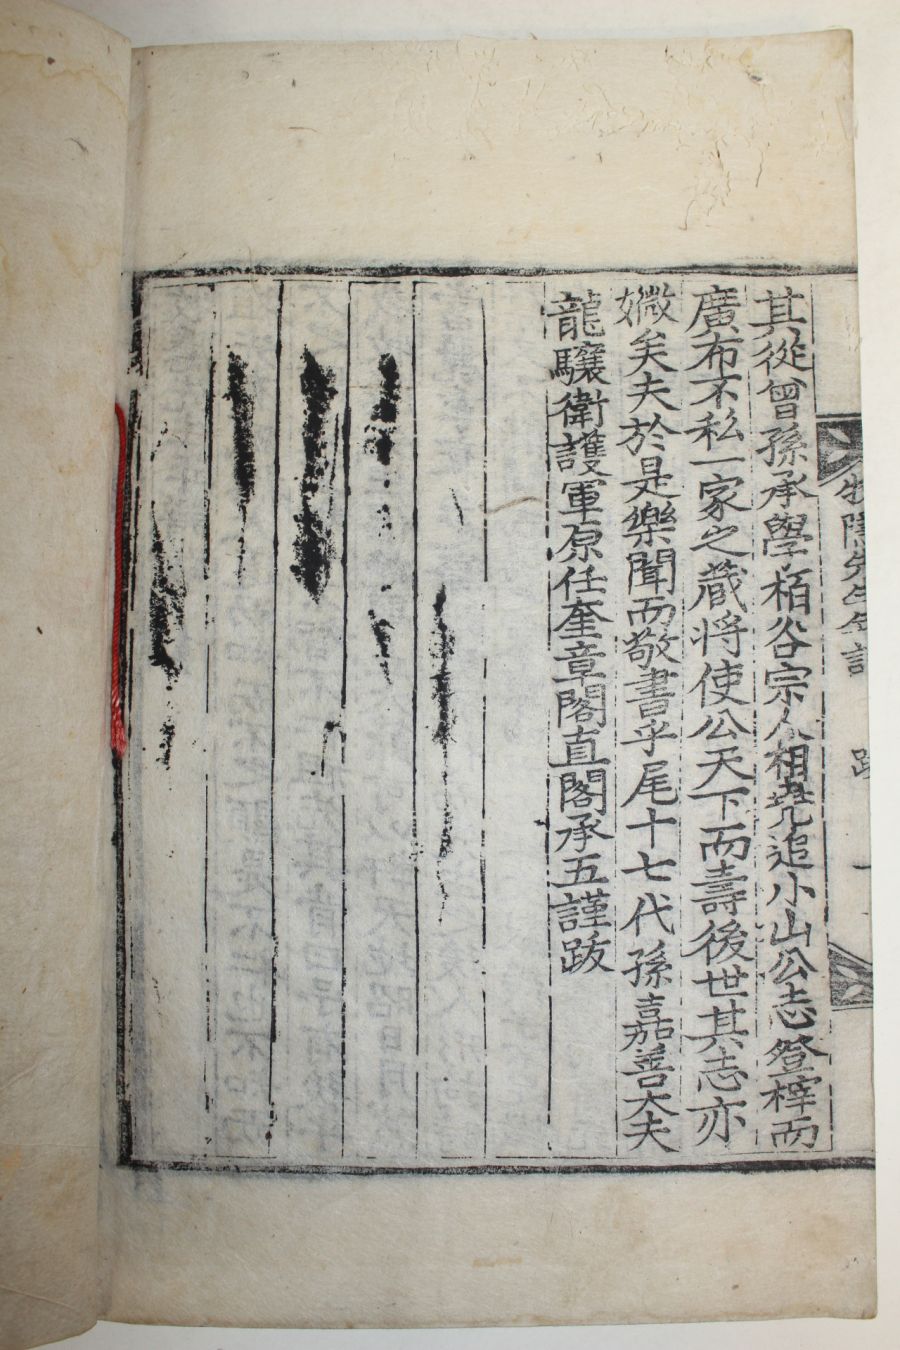 其從曾孫承學栢谷宗人相堯追小山公志登梓而
廣布不私一家之藏將使公天下而壽後世其志亦
媺矣夫於是樂聞而敬書乎尾十七代孫嘉善大夫
龍驤衛護軍原任奎章閣直閣承五謹跋
牧隱先生年譜 跋 一